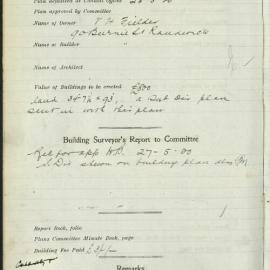 Plan deposited at Council Office 26-5-20
Plan approved by Committee
Name of Owner T H Fielder
90 Burnie St Randwick
Name of Builder "
Name of Architect
Value of Buildings to be erected £800
land 34'7½ x 93', a Sub Div plan
sent in with this plan
Building Surveyor's Report to Committee
Rec for app 27-5-20
S Div shewn on building plan
Report Book, folio
Plans Committee Minute Book, page
Building Fee Paid £3/-/-
Remarks